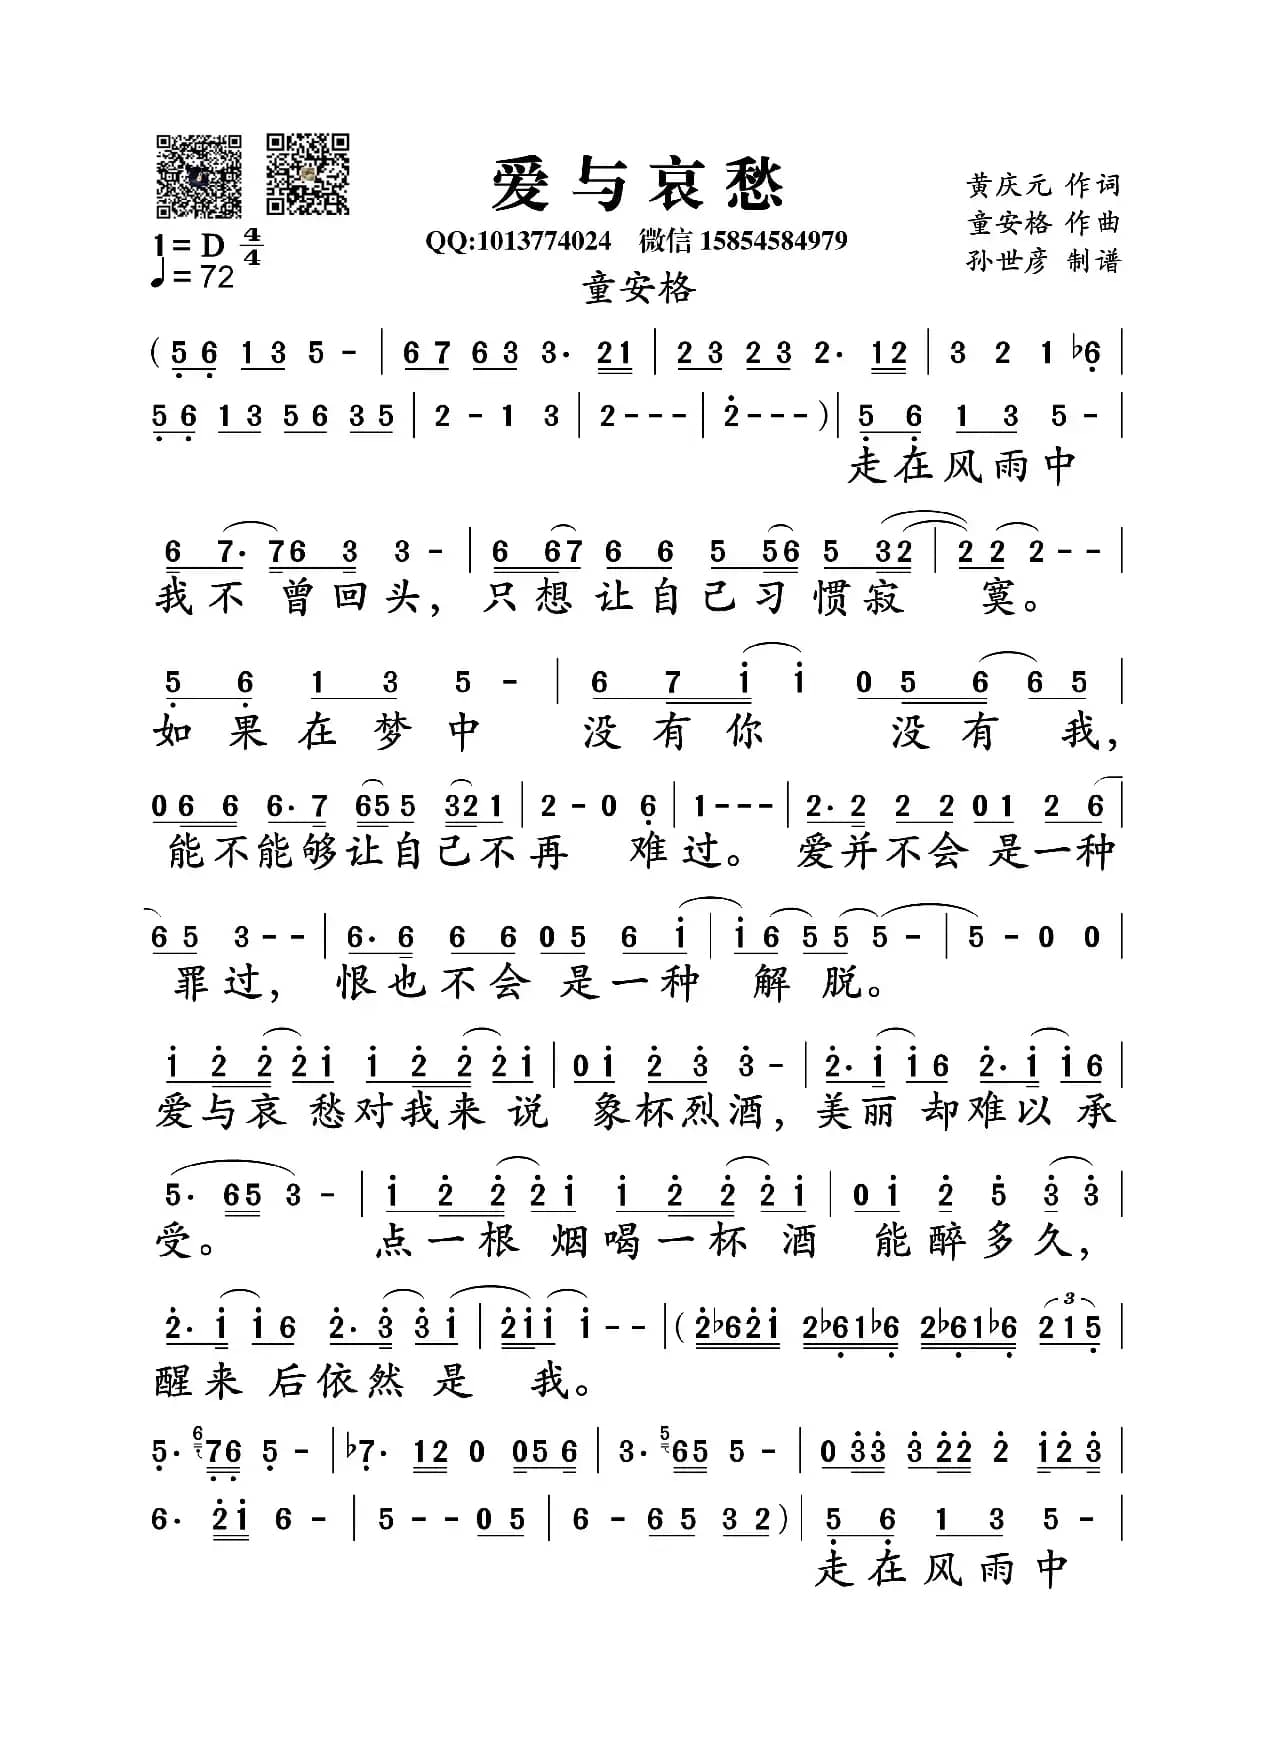 爱与哀愁
黄庆元 作词
童安格 作曲
孙世彦 制谱
QQ:1013774024 微信 15854584979
1=D 4/4
♩=72
童安格
(5̣6̣ 13 5 - | 67 63 3. 21 | 23 23 2. 12 | 3 2 1 ♭6̣ |
5̣6̣ 13 56 35 | 2 - 1 3 | 2 - - - | 2̇ - - - ) | 5̣ 6̣ 1 3 5 - |
走在风雨中
6 7. 76 3 3 - | 6 67 6 6 5 56 5 32 | 2 2 2 - - |
我不 曾回头, 只想让自己习 惯寂 寞。
5̣ 6̣ 1 3 5 - | 6 7 1̇ 1̇ 0 5 6 6 5 |
如 果 在 梦 中 没 有 你 没 有 我,
0 6 6 6. 7 65 5 32 1 | 2 - 0 6̣ | 1 - - - | 2. 2 2 2 0 1 2 6 |
能不能够让自己不再 难过。 爱并不会 是一种
6 5 3 - - | 6. 6 6 6 0 5 6 1̇ | 1̇ 6 5 5 5 - | 5 - 0 0 |
罪过, 恨也不会 是一种 解 脱。
1̇ 2̇ 2̇ 2̇ 1̇ 1̇ 2̇ 2̇ 2̇ 1̇ | 0 1̇ 2̇ 3̇ 3̇ - | 2̇. 1̇ 1̇ 6 2̇. 1̇ 1̇ 6 |
爱与哀 愁对我来 说 象杯烈酒, 美丽 却难以 承
5. 65 3 - | 1̇ 2̇ 2̇ 2̇ 1̇ 1̇ 2̇ 2̇ 2̇ 1̇ | 0 1̇ 2̇ 5̇ 3̇ 3̇ |
受。 点一根 烟喝一杯 酒 能醉多久,
2̇. 1̇ 1̇ 6 2̇. 3̇ 3̇ 1̇ | 2̇ 1̇ 1̇ 1̇ - - | (2̇♭62̇1̇ 2♭6̣1♭6̣ 2♭6̣1♭6̣ 3 215̣ |
醒来 后依然 是 我。
5̣. 6 7̣6̣ 5̣ - | ♭7̣. 12 0 056 | 3. 5 65 5 - | 0 3̇3̇ 3̇ 2̇2̇ 2̇ 1̇2̇ 3̇ |
6. 2̇1̇ 6 - | 5 - - 05 | 6 - 65 32) | 5̣ 6̣ 1 3 5 - |
走在风雨中